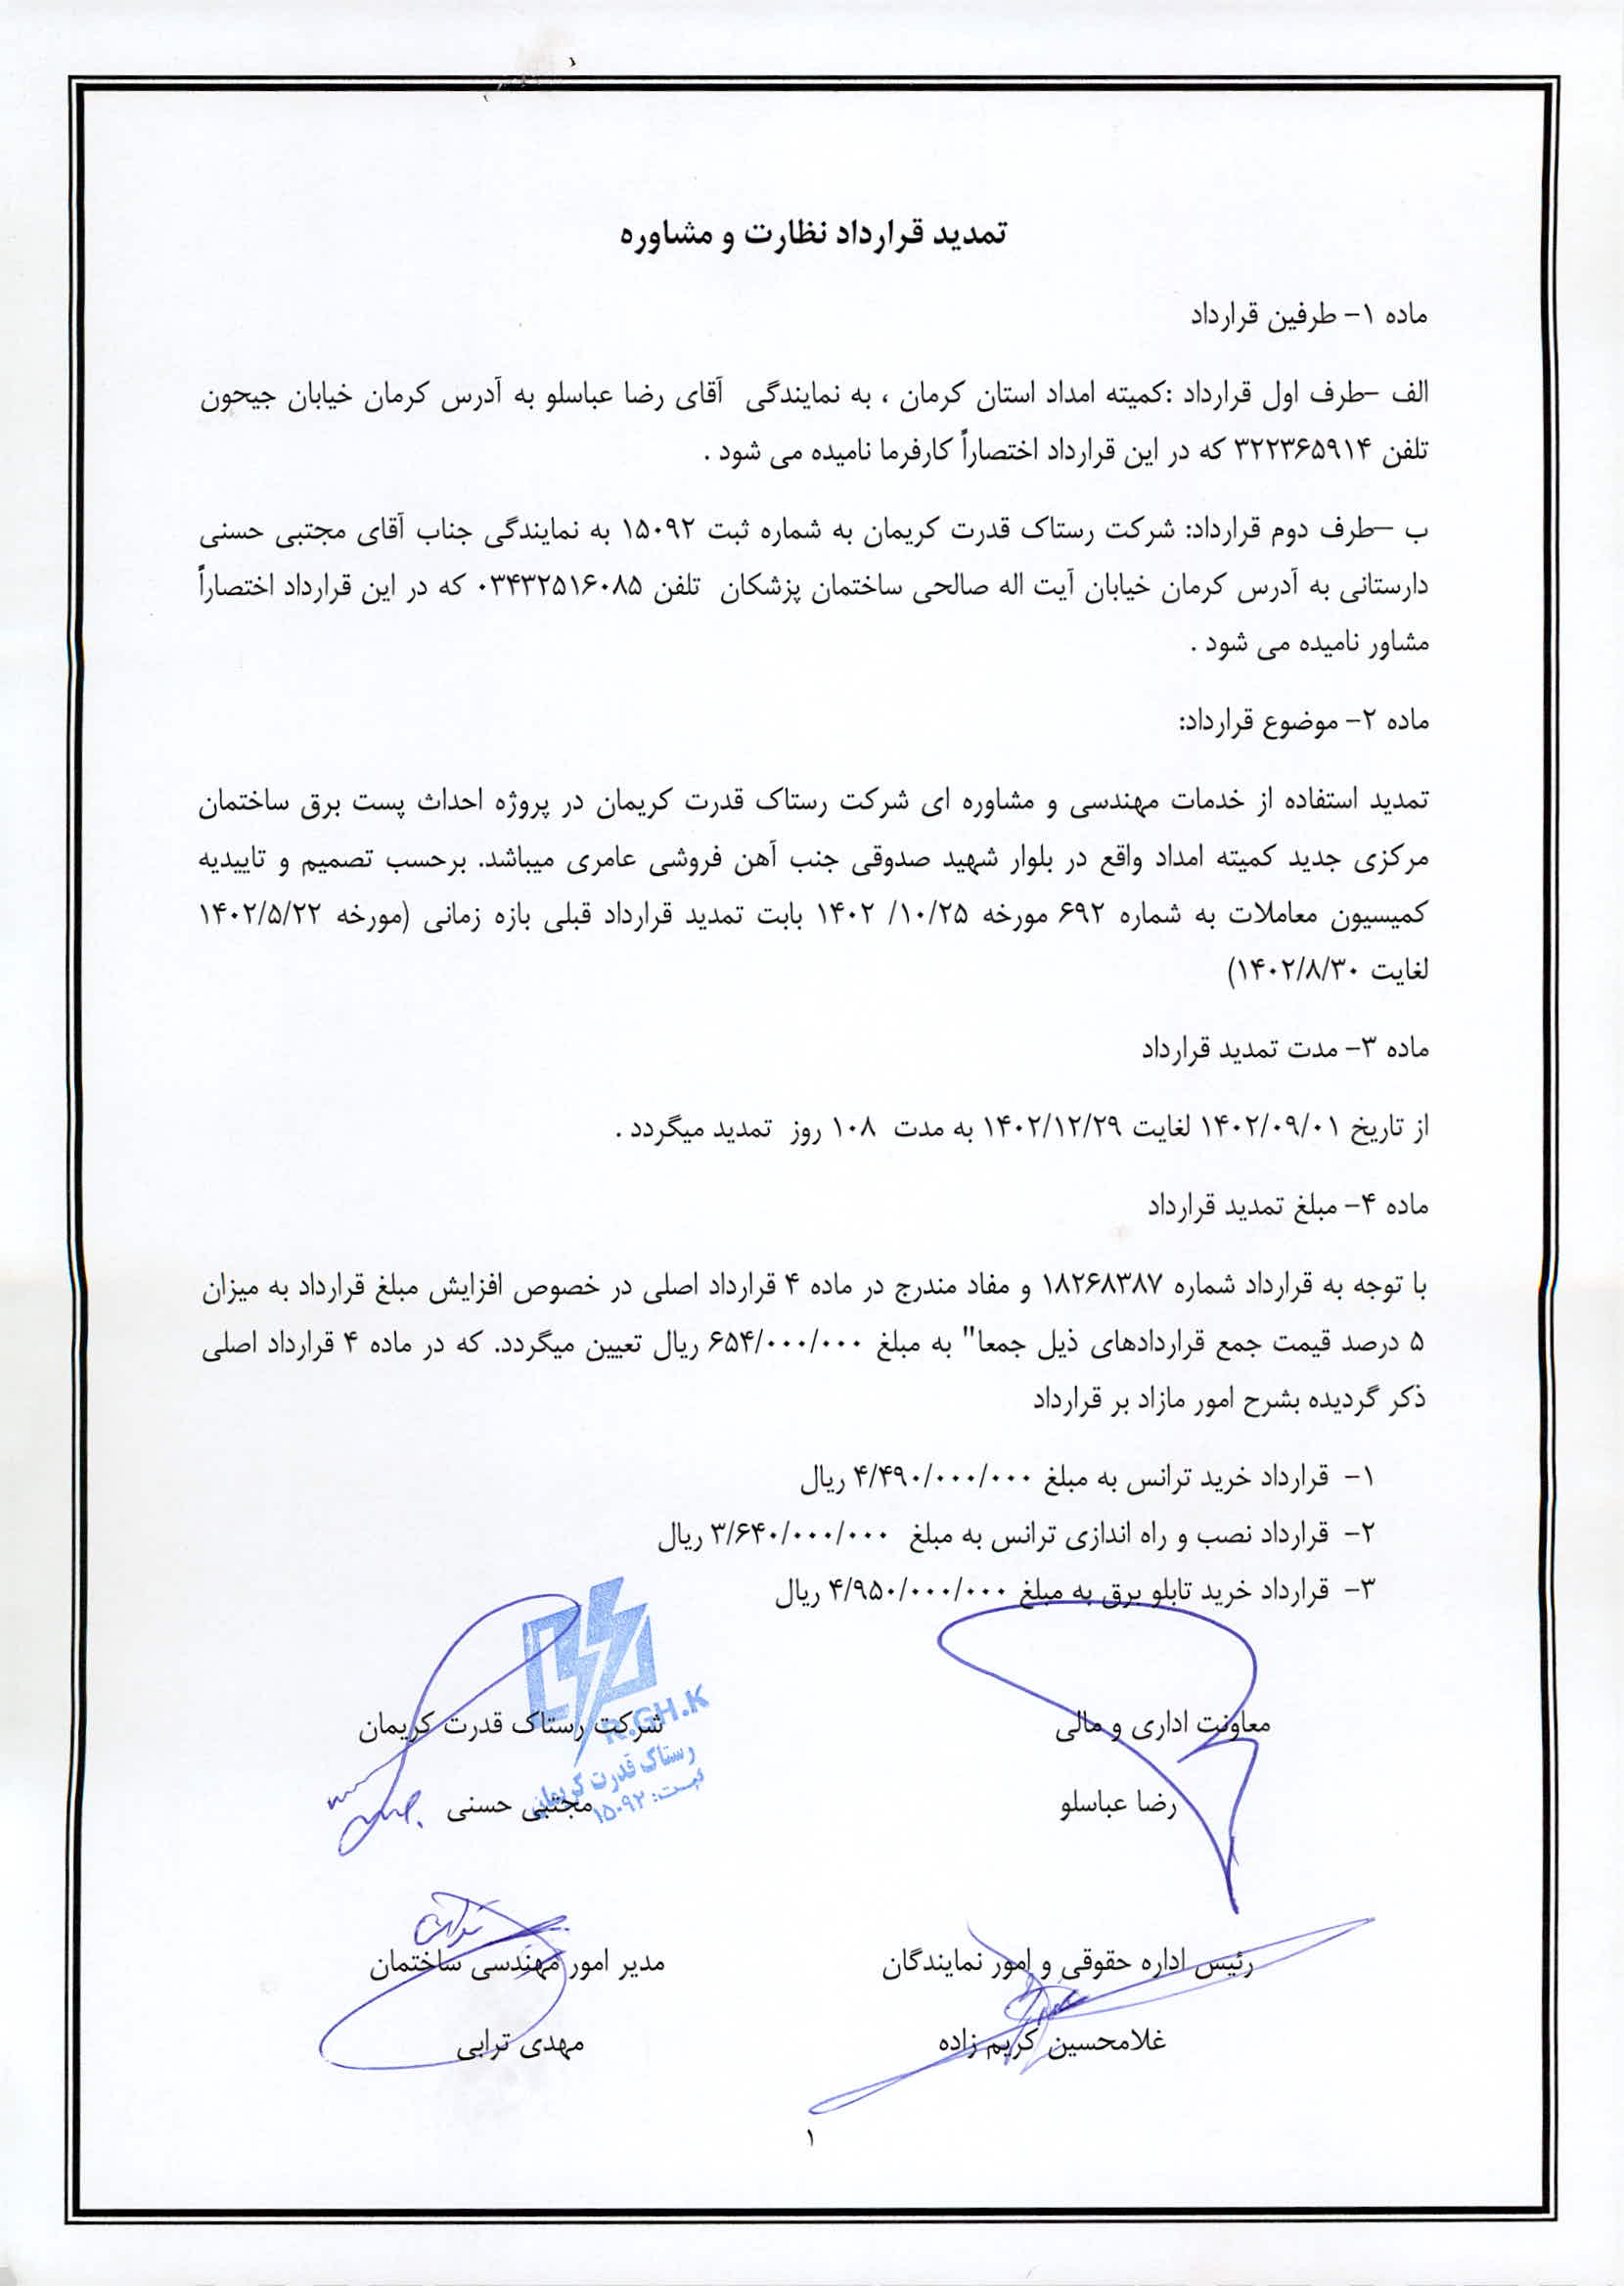 تمدید قرارداد نظارت و مشاوره
ماده ۱- طرفین قرارداد
الف –طرف اول قرارداد :کمیته امداد استان کرمان ، به نمایندگی آقای رضا عباسلو به آدرس کرمان خیابان جیحون
تلفن ۳۲۲۳۶۵۹۱۴ که در این قرارداد اختصاراً کارفرما نامیده می شود .
ب –طرف دوم قرارداد: شرکت رستاک قدرت کریمان به شماره ثبت ۱۵۰۹۲ به نمایندگی جناب آقای مجتبی حسنی
دارستانی به آدرس کرمان خیابان آیت اله صالحی ساختمان پزشکان تلفن ۰۳۴۳۲۵۱۶۰۸۵ که در این قرارداد اختصاراً
مشاور نامیده می شود .
ماده ۲- موضوع قرارداد:
تمدید استفاده از خدمات مهندسی و مشاوره ای شرکت رستاک قدرت کریمان در پروژه احداث پست برق ساختمان
مرکزی جدید کمیته امداد واقع در بلوار شهید صدوقی جنب آهن فروشی عامری میباشد. برحسب تصمیم و تاییدیه
کمیسیون معاملات به شماره ۶۹۲ مورخه ۱۰/۲۵/ ۱۴۰۲ بابت تمدید قرارداد قبلی بازه زمانی (مورخه ۱۴۰۲/۵/۲۲
لغایت ۱۴۰۲/۸/۳۰)
ماده ۳- مدت تمدید قرارداد
از تاریخ ۱۴۰۲/۰۹/۰۱ لغایت ۱۴۰۲/۱۲/۲۹ به مدت ۱۰۸ روز تمدید میگردد .
ماده ۴- مبلغ تمدید قرارداد
با توجه به قرارداد شماره ۱۸۲۶۸۳۸۷ و مفاد مندرج در ماده ۴ قرارداد اصلی در خصوص افزایش مبلغ قرارداد به میزان
۵ درصد قیمت جمع قراردادهای ذیل جمعا" به مبلغ ۶۵۴/۰۰۰/۰۰۰ ریال تعیین میگردد. که در ماده ۴ قرارداد اصلی
ذکر گردیده بشرح امور مازاد بر قرارداد
۱- قرارداد خرید ترانس به مبلغ ۴/۴۹۰/۰۰۰/۰۰۰ ریال
۲- قرارداد نصب و راه اندازی ترانس به مبلغ ۳/۶۴۰/۰۰۰/۰۰۰ ریال
۳- قرارداد خرید تابلو برق به مبلغ ۴/۹۵۰/۰۰۰/۰۰۰ ریال
معاونت اداری و مالی
رضا عباسلو
شرکت رستاک قدرت کریمان
مجتبی حسنی
R.GH.K
رستاک قدرت کریمان
ثبت: ۱۵۰۹۲
رئیس اداره حقوقی و امور نمایندگان
غلامحسین کریم زاده
مدیر امور مهندسی ساختمان
مهدی ترابی
۱